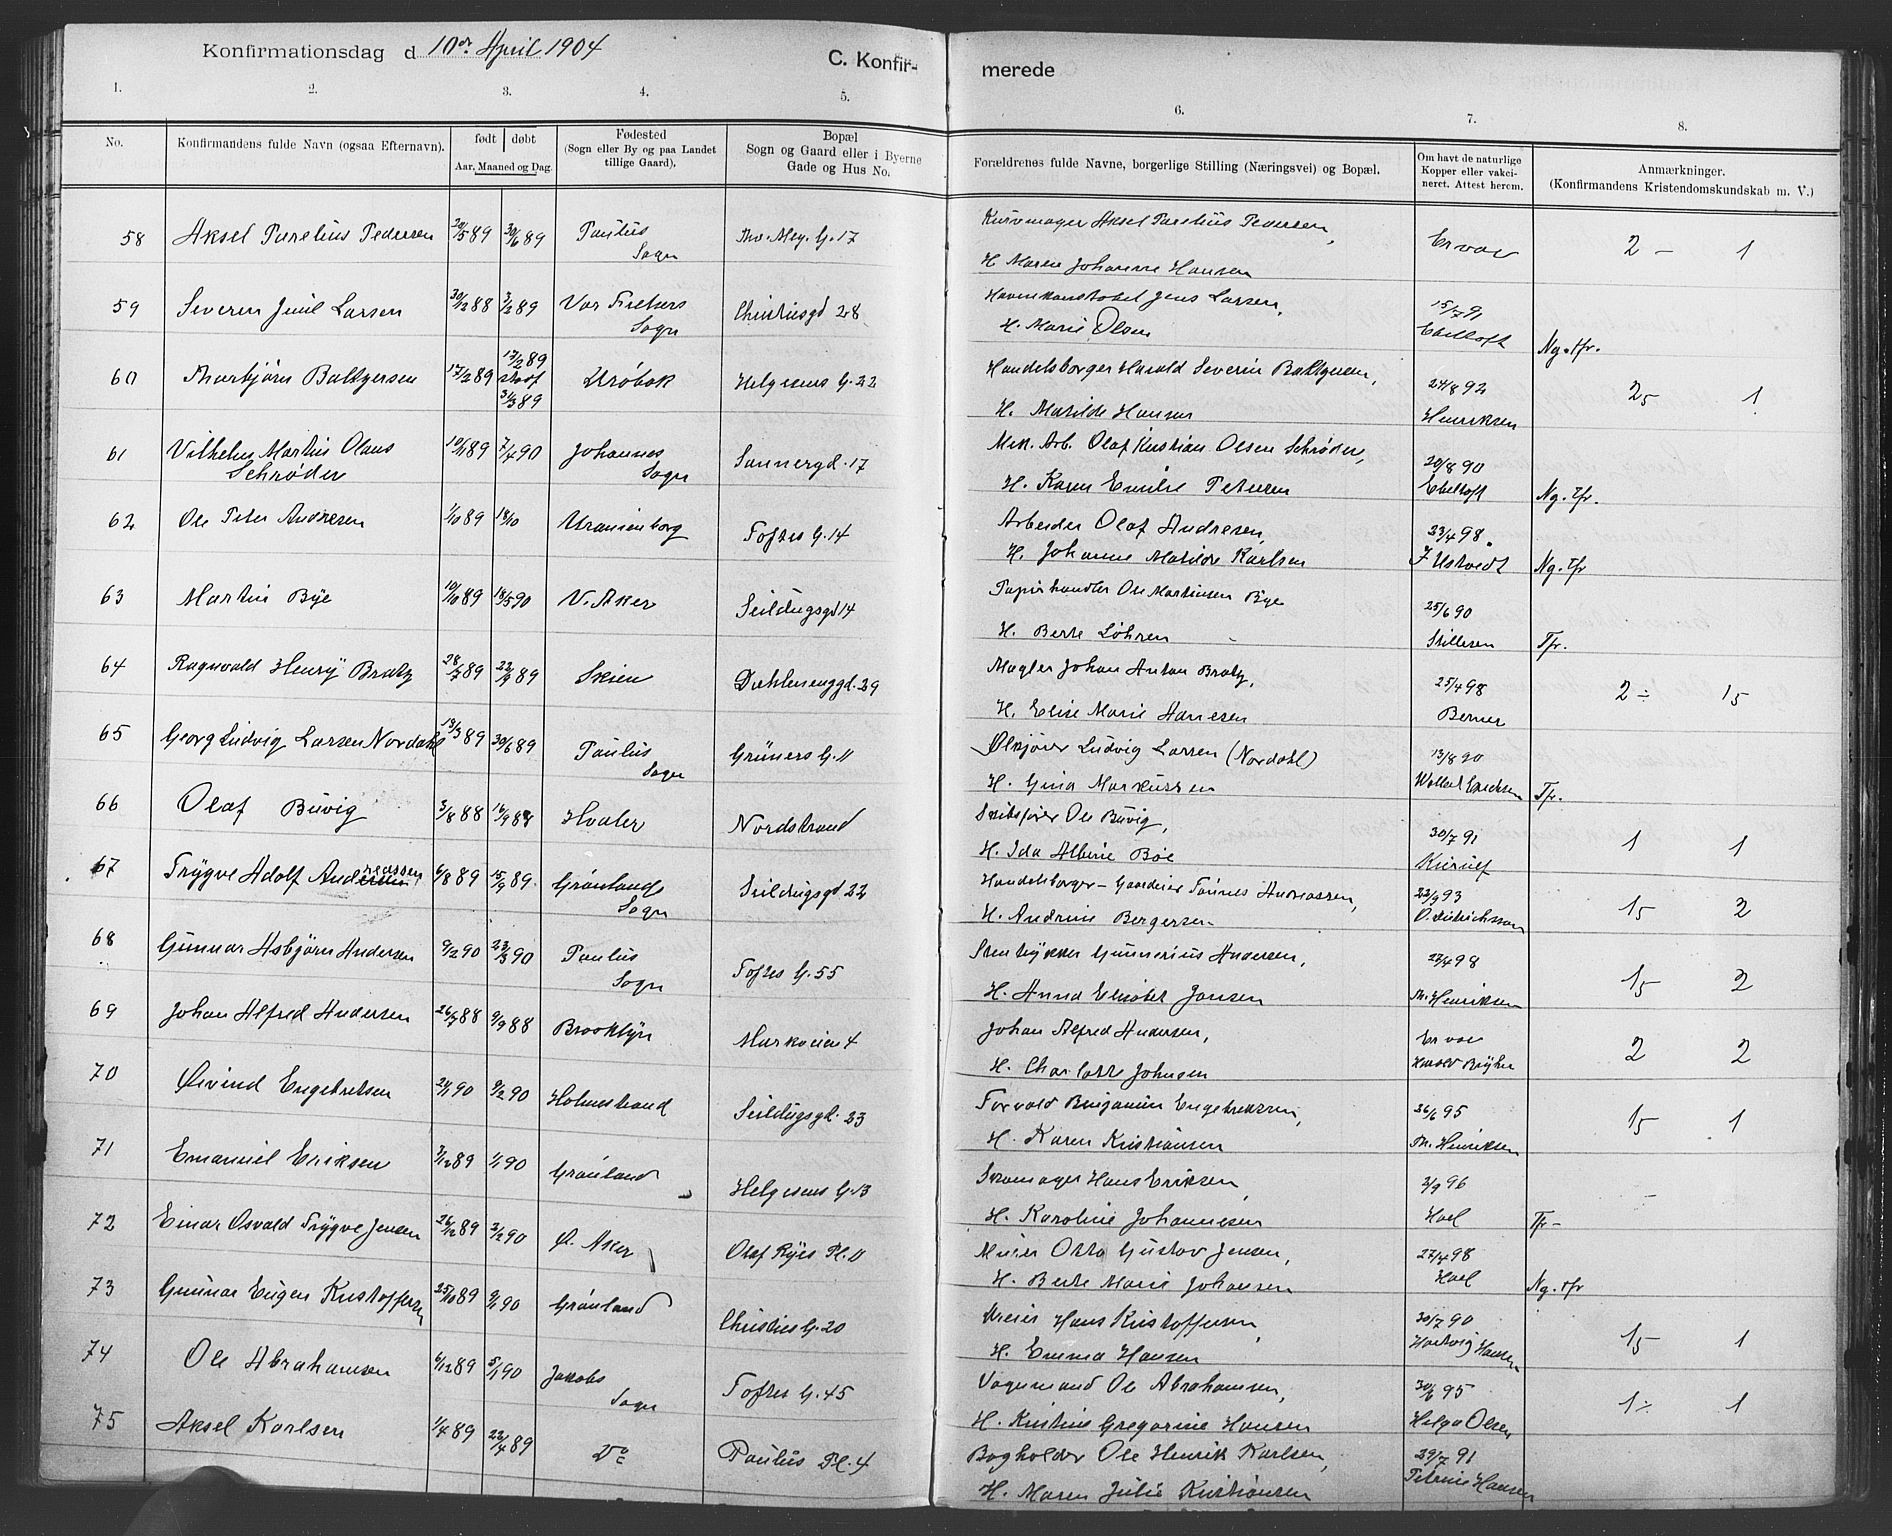 Konfirmationsdag d. 10de April 1904
C. Konfir-
merede
1. 2. 3. 4. 5. 6. 7. 8.
No.
Konfirmandens fulde Navn (ogsaa Efternavn).
født døbt
Aar, Maaned og Dag.
Fødested
(Sogn eller By og paa Landet
tillige Gaard).
Bopæl
Sogn og Gaard eller i Byerne
Gade og Hus No.
Forældrenes fulde Navne, borgerlige Stilling (Næringsvei) og Bopæl.
Om havt de naturlige
Kopper eller vakci-
neret. Attest herom.
Anmærkninger.
(Konfirmandens Kristendomskundskab m. V.)
58 Aksel Parelius Pedersen 20/5 89 30/6 89 Paulus Sogn Th. Mey. G. 17
Kurvmager Aksel Parelius Pedersen,
H. Maren Johanne Hansen
Er vac 2 – 1
59 Severin Juul Larsen 30/12 88 3/2 89 Vor Frelsers Sogn Christiesgd 28
Havnekonstabel Jens Larsen,
H. Marie Olsen
15/7 91 Ebeltoft Ng. tfr.
60 Thorbjørn Baltzersen 17/2 89 17/2 89 stadf 31/3 89 Drøbak Helgesens G. 22
Handelsborger Harald Severin Baltzersen,
H. Matilde Hansen
24/8 92 Henriksen 25 1
61 Vilhelm Martin Olaus Schrøder 10/11 89 7/4 90 Johannes Sogn Sannergd. 17
Mek. Arb. Olaf Kristian Olsen Schrøder,
H. Karen Emilie Petersen
20/8 90 Ebeltoft Ng. Tfr.
62 Ole Peter Andresen 1/10 89 18/10 Uranienborg Toftes G. 14
Arbeider Olaf Andresen,
H. Johanne Matilde Karlsen
23/4 98. J Ustvedt Ng. Tfr
63 Martin Bye 10/10 89 18/5 90 V. Aker Seildugsgd 14
Papirhandler Ole Martinsen Bye
H. Berte Løhren
25/6 90 Stillesen Tfr.
64 Ragnvald Henry Bratz 28/7 89 22/9 89 Skien Dæhlenenggd. 29
Mægler Johan Anton Bratz,
H. Elise Marie Hansen
25/4 98 Berner 2 ÷ 15
65 Georg Ludvig Larsen Nordahl 13/3 89 30/6 89 Paulus Sogn Grüners G. 11
Ølkjører Ludvig Larsen (Nordahl)
H. Gina Markussen
13/8 90 Tfr.
66 Olaf Buvig 3/8 88 16/9 88 Hvaler Nordstrand
Skibsfører Ole Buvig,
H. Ida Albine Bøe
30/7 91 Kierulf 1 1
67 Trygve Adolf Andreassen 6/8 89 15/9 89. Grønlands Sogn Seildugsgd 22
Handelsborger – Gaardeier Tønnes Andreassen,
H. Andrine Bergersen
22/9 93 O. Didrichsson 15 2
68 Gunnar Asbjørn Andersen 9/2 90 23/3 90 Paulus Sogn Toftes G. 55
Stentrykker Gunnerius Andersen,
H. Anna Elisabet Jansen
27/4 98 Th. Henriksen 15 2
69 Johan Alfred Andersen 26/7 88 9/9 88 Brooklyn Markveien 4
Johan Alfred Andersen,
H. Charlotte Johnsen
Er vac 2 2
70 Øivind Engebretsen 24/1 90 9/2 90 Holmestrand Seildugsgd. 23
Torvald Benjamin Engebretsen,
H. Karen Kristiansen
26/6 95 Th. Henriksen 15 1
71 Emanuel Eriksen 7/12 89 1/1 90 Grønland Helgesens G. 13
Skomager Hans Eriksen,
H. Karoline Johannesen
3/9 96 Hoel Tfr –
72 Einar Osvald Trygve Jensen 26/12 89 2/2 90 Ø. Aker Olaf Ryes Pl. 11
Murer Otto Gustav Jensen,
H. Berte Marie Johansen
27/4 98 Hoel Ng. tfr
73 Gunnar Eugen Kristoffersen 25/10 89 9/1 90 Grønland Christies G. 20
Dreier Hans Kristoffersen,
H. Emma Hansen
30/7 90 Hartvig Hansen 15 1
74 Ole Abrahamsen 6/12 89 5/1 90 Jakobs Sogn Toftes G. 45
Vognmand Ole Abrahamsen,
H. Kristine Gregorine Hansen
30/6 95 Helga Olsen 1 ÷ 1
75 Aksel Karlsen 1/4 89 22/4 89 Do Paulus Pl. 4
Bogholder Ole Henrik Karlsen,
H. Maren Julie Kristiansen
29/7 91 Petrine Hansen